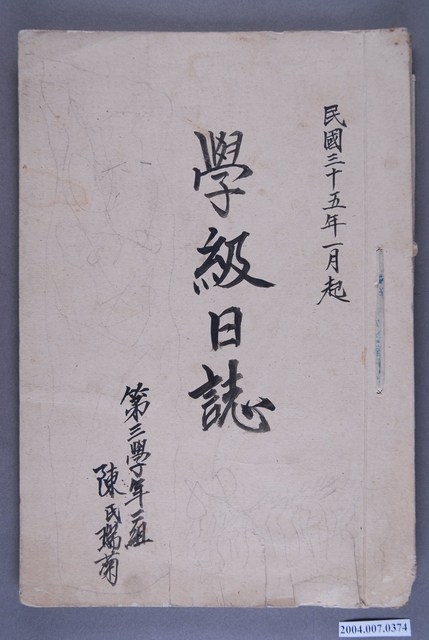 民國三十五年一月起
學級日誌
第三學年二組
陳氏瑞菊
2004.007.0374